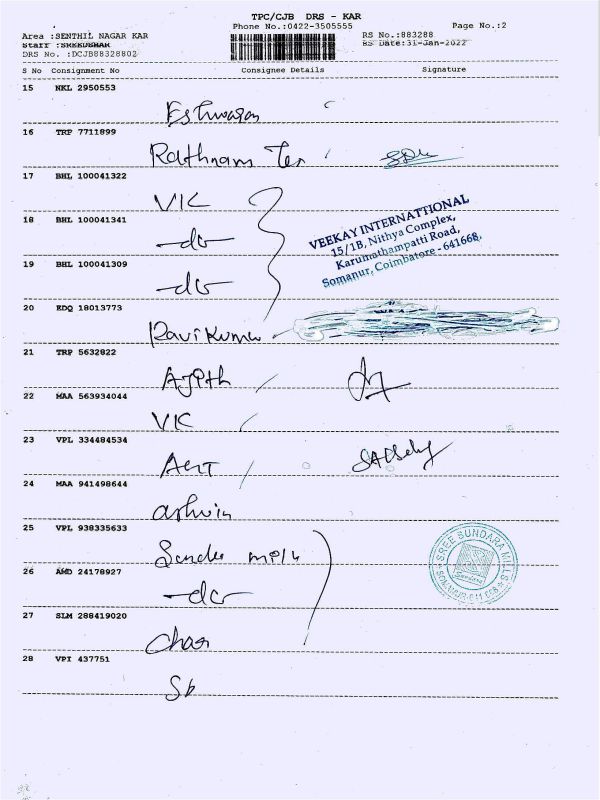 TPC/CJB DRS - KAR
Phone No.:0422-3505555
Page No.:2
Area :SENTHIL NAGAR KAR
RS No.:883288
Staff :SREEDHAR
RS Date:31-Jan-2022
DRS No. :DCJB88328802
S No Consignment No Consignee Details Signature
15 NKL 2950553
Eshwaran
16 TRP 7711899
Rathnam Tex
17 BHL 100041322
VIK
18 BHL 100041341
-do-
VEEKAY INTERNATTIONAL
15/1B, Nithya Complex,
Karumathampatti Road,
Somanur, Coimbatore - 641668.
19 BHL 100041309
-do-
20 EDQ 18013773
Ravikumar
21 TRP 5632822
Ajith
22 MAA 563934044
VIK
23 VPL 334484534
24 MAA 941498644
ashwin
25 VPL 938335633
SREE SUNDARA MILLS
26 AMD 24178927
-do-
27 SLM 288419020
28 VPI 437751
Sb